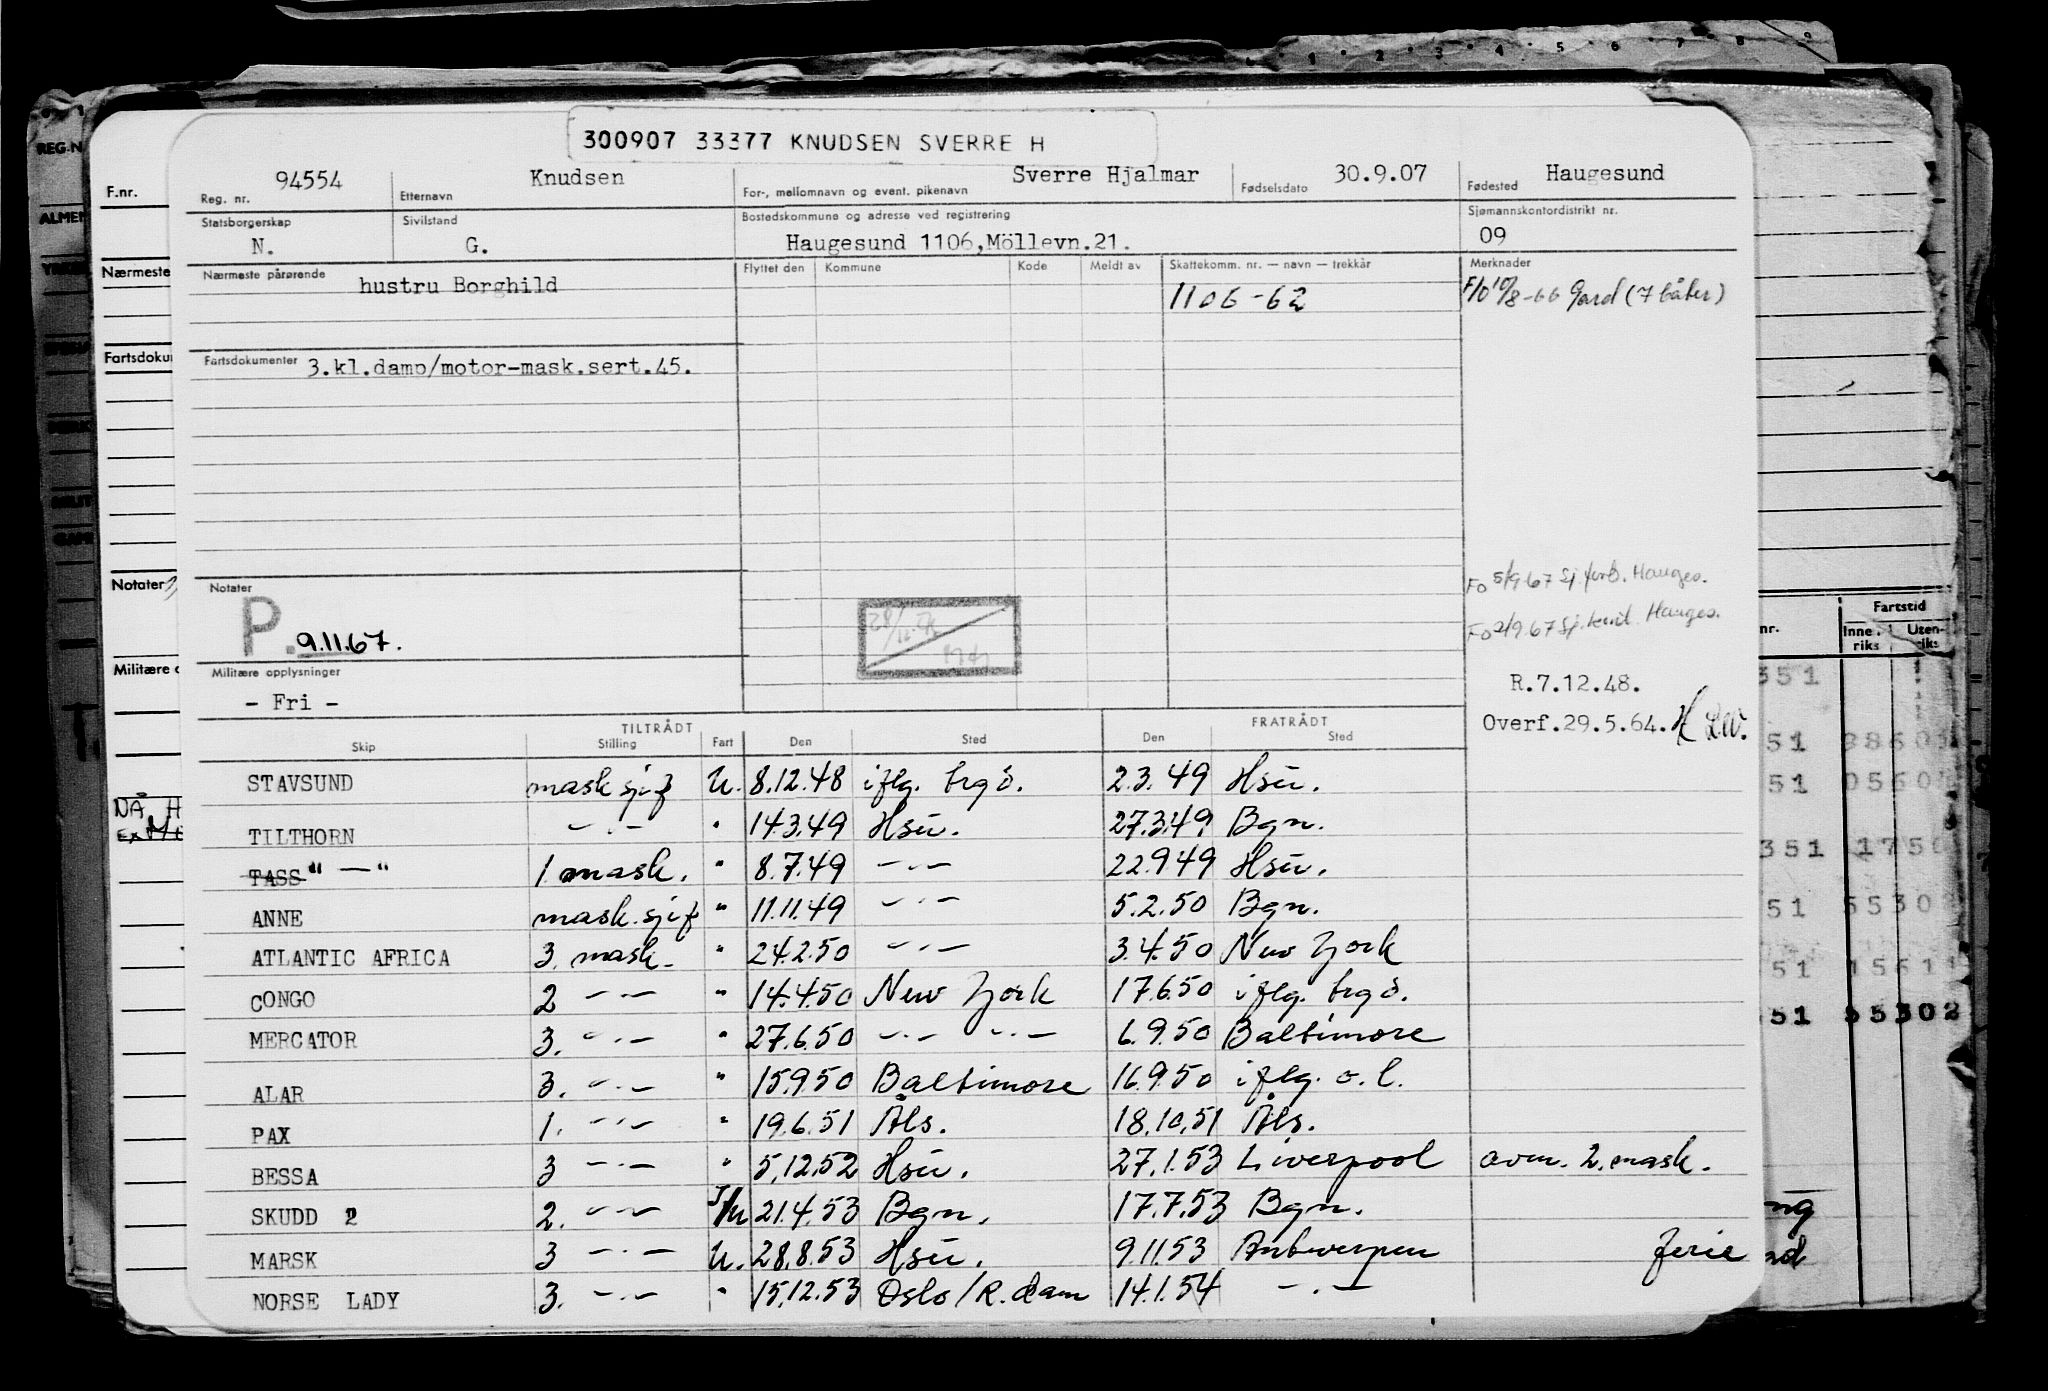 300907 33377 KNUDSEN SVERRE H
Reg. nr. 94554 Etternavn Knudsen For-, mellomnavn og event. pikenavn Sverre Hjalmar Fødselsdato 30.9.07 Fødested Haugesund
Statsborgerskap Sivilstand Bostedskommune og adresse ved registrering Sjømannskontordistrikt nr.
N. G. Haugesund 1106,Möllevn.21. 09
Nærmeste pårørende Flyttet den Kommune Kode Meldt av Skattekomm. nr. — navn — trekkår Merknader
hustru Borghild 1106-62 F/O 10/8-66 Gard (7 båter)
Fartsdokumenter 3.kl.damp/motor-mask.sert.45.
Notater
P. 9.11.67.
Fo 5/9 67 Sj.forb. Hauges.
Fo 2/9 67 Sj. Hauges.
Militære opplysninger
- Fri -
R.7.12.48.
Overf.29.5.64.
TILTRÅDT FRATRÅDT
Skip Stilling Fart Den Sted Den Sted
STAVSUND mask sjef U. 8.12.48 iflg. brg ö. 2.3.49 Hsu.
TILTHORN —"— " 14.3.49 Hsu. 27.3.49 Bgn.
TASS " — " 1 mask. " 8.7.49 —"— 22.9.49 Hsu.
ANNE mask. sjef " 11.11.49 —"— 5.2.50 Bgn.
ATLANTIC AFRICA 3. mask. " 24.2.50 —"— 3.4.50 New York
CONGO 2 —"— " 14.4.50 New York 17.6.50 iflg. brg ö.
MERCATOR 3. —"— " 27.6.50 —"— —"— 6.9.50 Baltimore
ALAR 3. —"— " 15.9.50 Baltimore 16.9.50 iflg. o.l.
PAX 1. —"— " 19.6.51 Åls. 18.10.51 Åls.
BESSA 3 —"— " 5.12.52 Hsu. 27.1.53 Liverpool avm. 2. mask.
SKUDD 2 2. —"— I/U 21.4.53 Bgn. 17.7.53 Bgn.
MARSK 3 —"— U. 28.8.53 Hsu. 9.11.53 Antwerpen ferie
NORSE LADY 3. —"— " 15.12.53 Oslo/R.dam 14.1.54 —"—
F.nr.
Nærmeste
Fartsdoku
Notater
Militære o
REG.N
ALMEN
nr. Fartstid
Inne-riks Uten-riks
351
51
51 0560
351 1750
51 5530
51 15611
51 55302